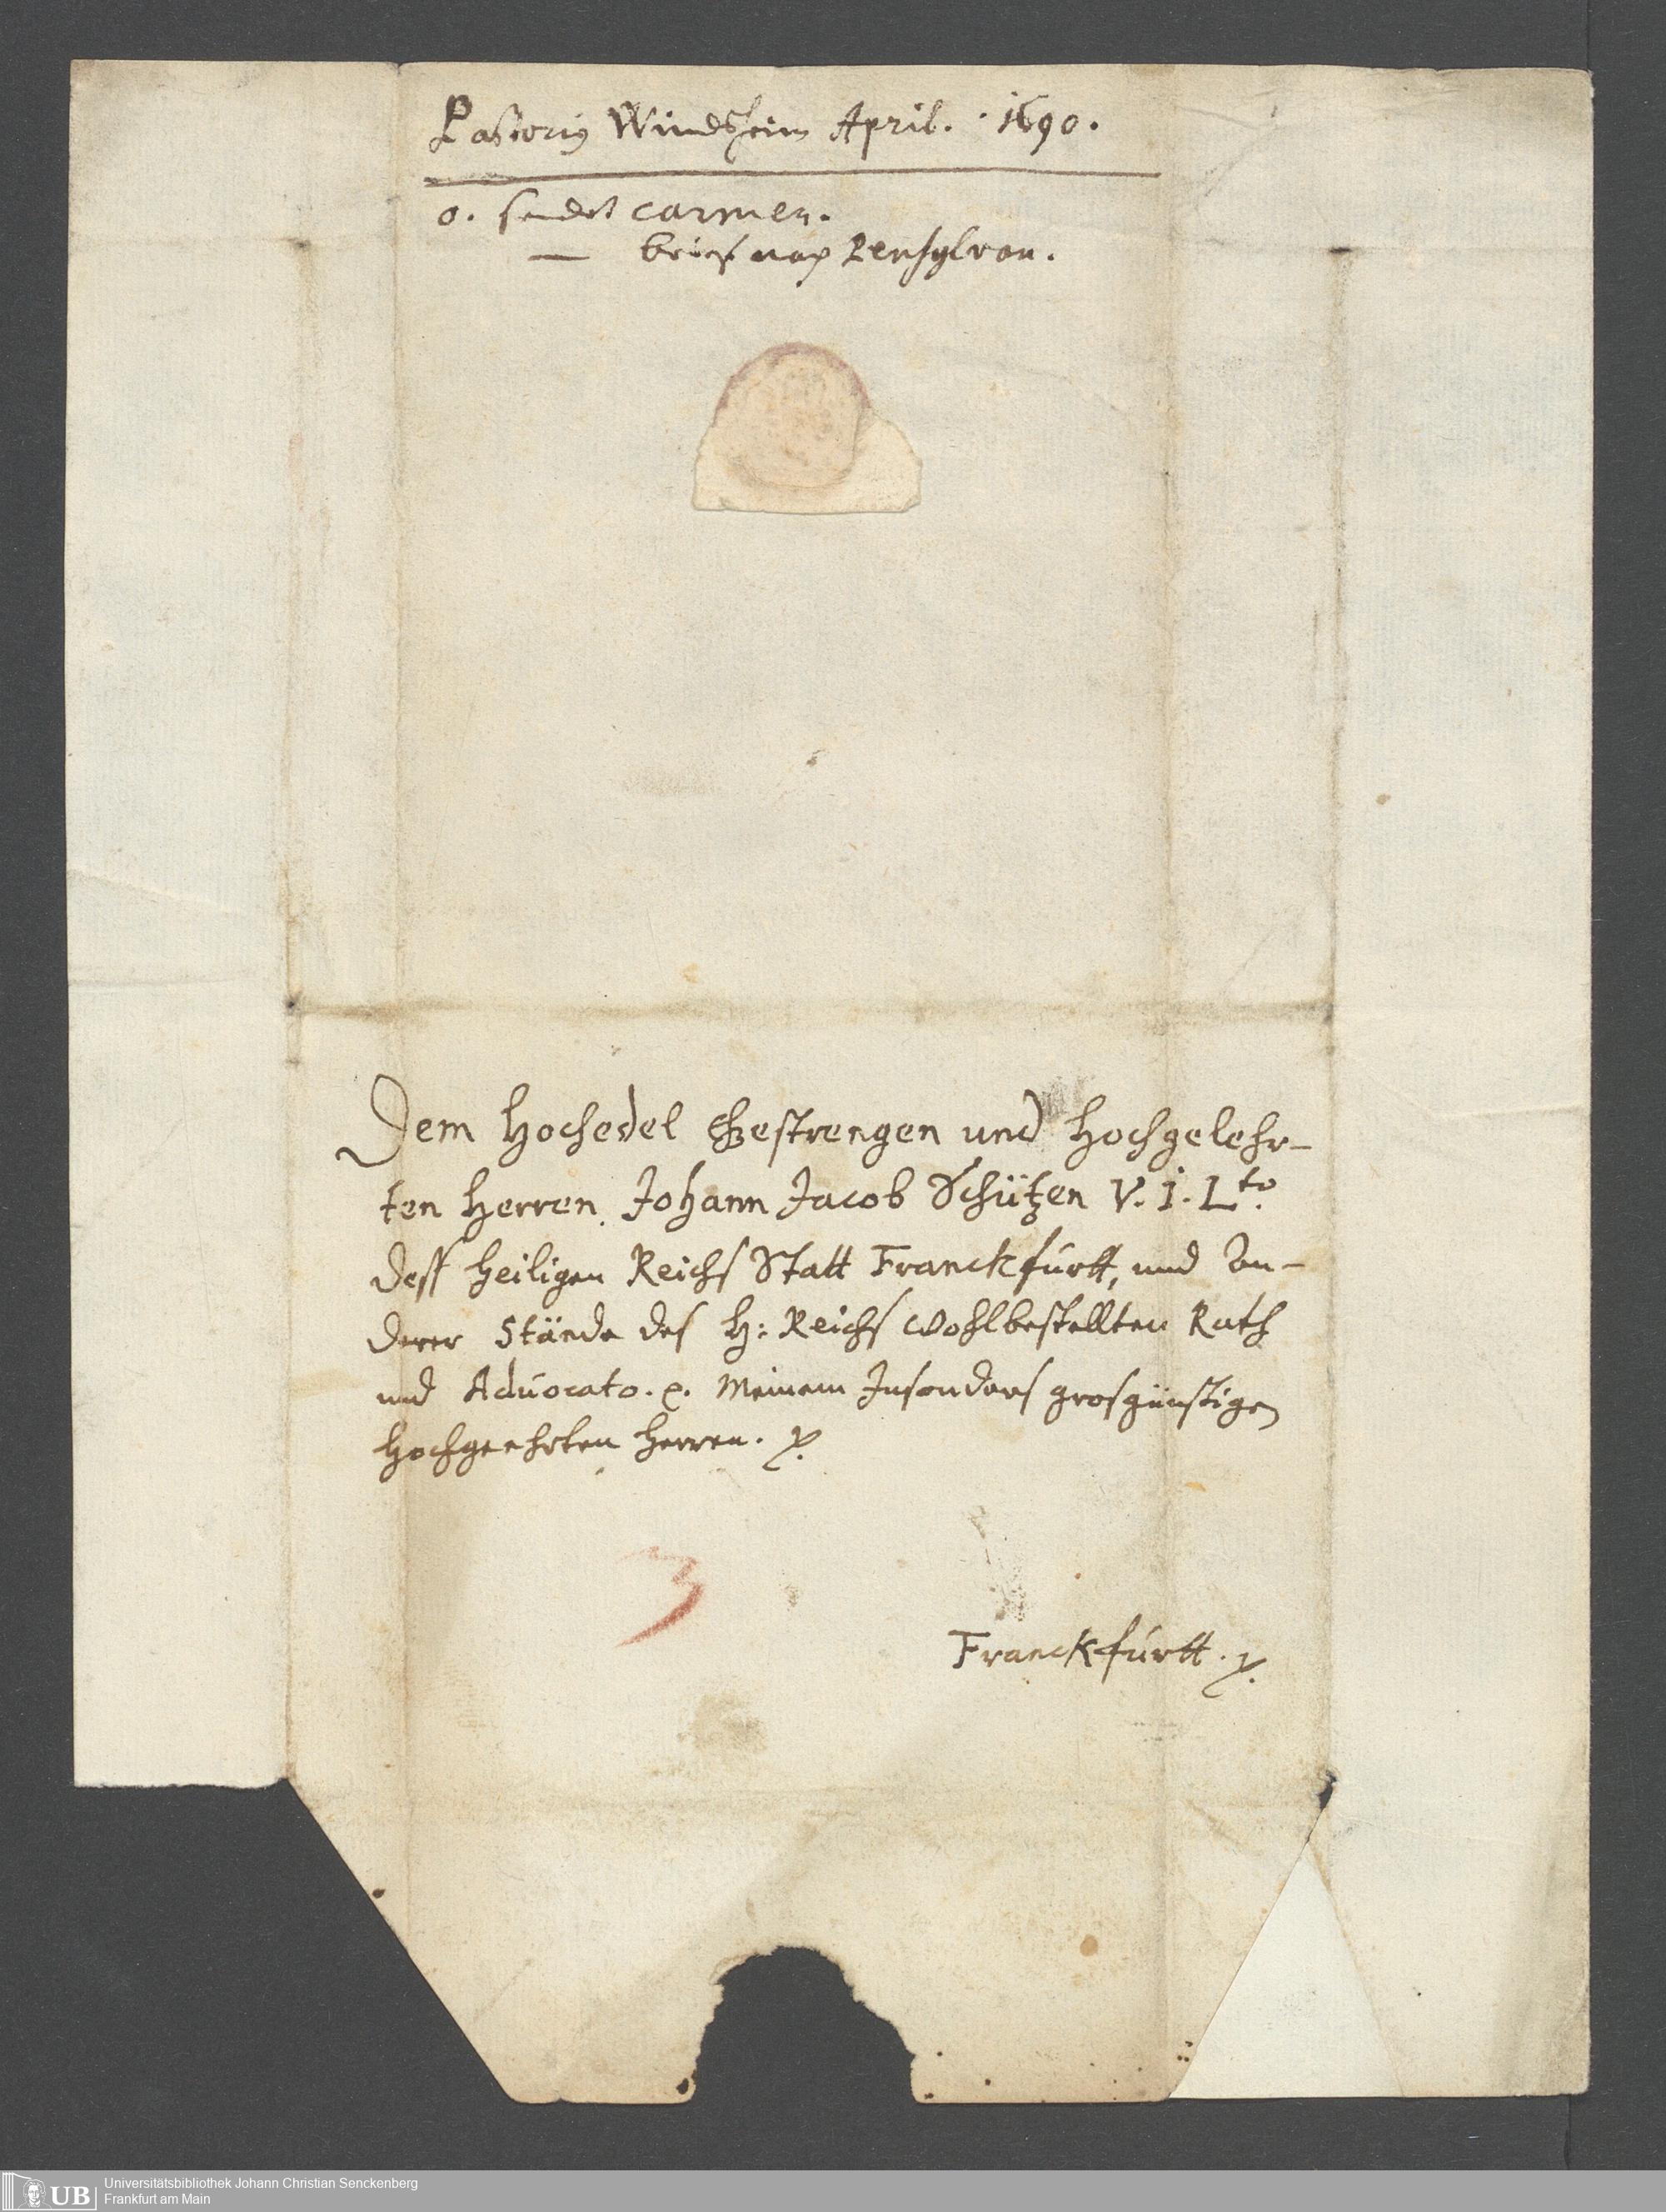 Pastorius Windsheim April. 1690.
0. sendet carmen.
— brief nach Pensylvan.
Dem Hochedel Gestrengen und Hochgelehr-
ten Herren Johann Jacob Schützen V. I. Lto.
dess heiligen Reichs Statt Franckfurtt, und An-
derer Stände des H: Reichs Wohlbestellten Rath
und Advocato. p. Meinem Insonders grosgünstigen
Hochgeehrten Herren. p.
3
Franckfurtt. p.
UB Universitätsbibliothek Johann Christian Senckenberg
Frankfurt am Main